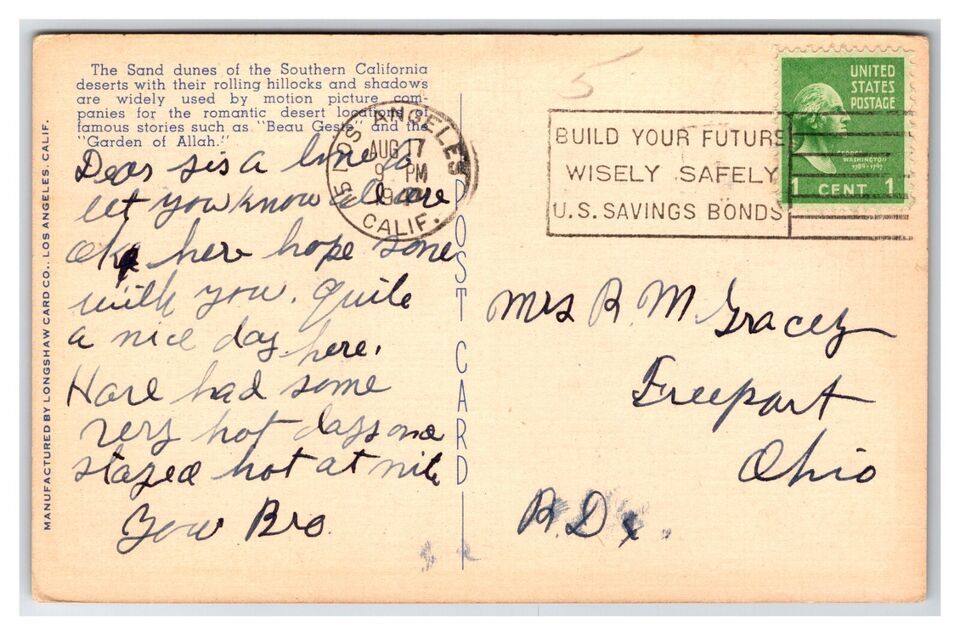 The Sand dunes of the Southern California
deserts with their rolling hillocks and shadows
are widely used by motion picture com-
panies for the romantic desert locations of
famous stories such as "Beau Geste" and the
"Garden of Allah."
Dear sis a line to
let you know all are
ok here hope same
with you. Quite
a nice day here.
Have had some
very hot days and
stayed hot at nite
Your Bro.
MANUFACTURED BY LONGSHAW CARD CO., LOS ANGELES, CALIF.
POST CARD
LOS ANGELES
AUG 17
9 PM
194
CALIF.
5
BUILD YOUR FUTURE
WISELY SAFELY
U.S. SAVINGS BONDS
UNITED
STATES
POSTAGE
GEORGE
WASHINGTON
1789-1797
1 CENT 1
Mrs R. M Gracey
Freeport
Ohio
R.D.